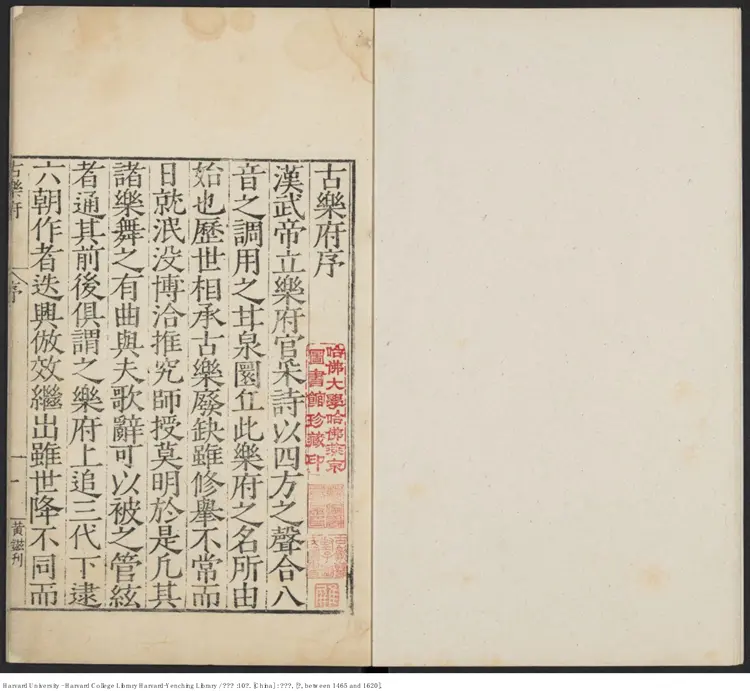 古樂府序
漢武帝立樂府官采詩以四方之聲合八
音之調用之甘泉圜丘此樂府之名所由
始也歷世相承古樂廢缺雖修舉不常而
日就泯没博洽推究師授莫明於是凢其
諸樂舞之有曲與夫歌辭可以被之管絃
者通其前後俱謂之樂府上追三代下逮
六朝作者迭興倣效繼出雖世降不同而
古樂府
序
一
黃鎡刋
哈佛大學哈佛燕京
圖書館珍藏印
Harvard University - Harvard College Library Harvard-Yenching Library / ??? :10?. [China] : ???, [?, between 1465 and 1620].